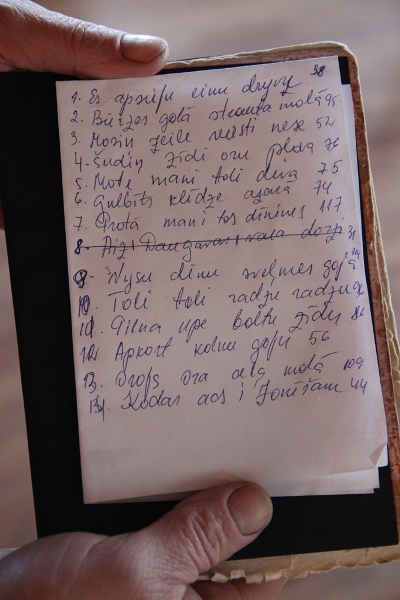 1. Es apsieju eimu dryvy 38
2. Bierzes golā strauta molā 95
3. Mozin zeile mežti nese 52
4. Sudiņ zīdi oru pļova 76
5. Mote mani toli deve 75
6. Gulbīts klidze azarā 74
7. Protā mani tos dīnines 117
8. Aiz Daugavas vara dorzi
9. Vysu dīnu sveļmes goja
10. Toli toli radzu radzu
11. Pilna upe boltu zīdu 86
12. Apkōrt kolnu goju 56
13. Orojs ora olg molā 109
14. Kodas aos i Jonīšam 44